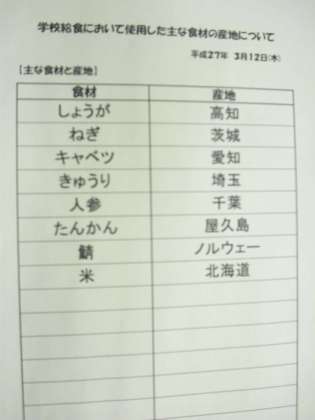 学校給食において使用した主な食材の産地について
平成27年 3月12日(木)
[主な食材と産地]
食材 産地
しょうが 高知
ねぎ 茨城
キャベツ 愛知
きゅうり 埼玉
人参 千葉
たんかん 屋久島
鯖 ノルウェー
米 北海道